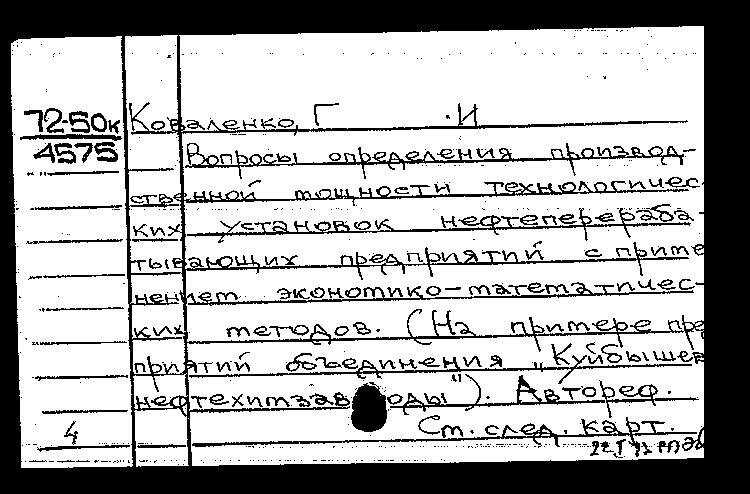 72-50к Коваленко, Г. И
4575 Вопросы определения производ-
ственной мощности технологичес-
ких установок нефтеперераба-
тывающих предприятий с приме
нением экономико-математичес-
ких методов. (На примере пре
приятий объединения „Куйбышев
нефтехимзаводы"). Автореф.
4 См. след. карт.